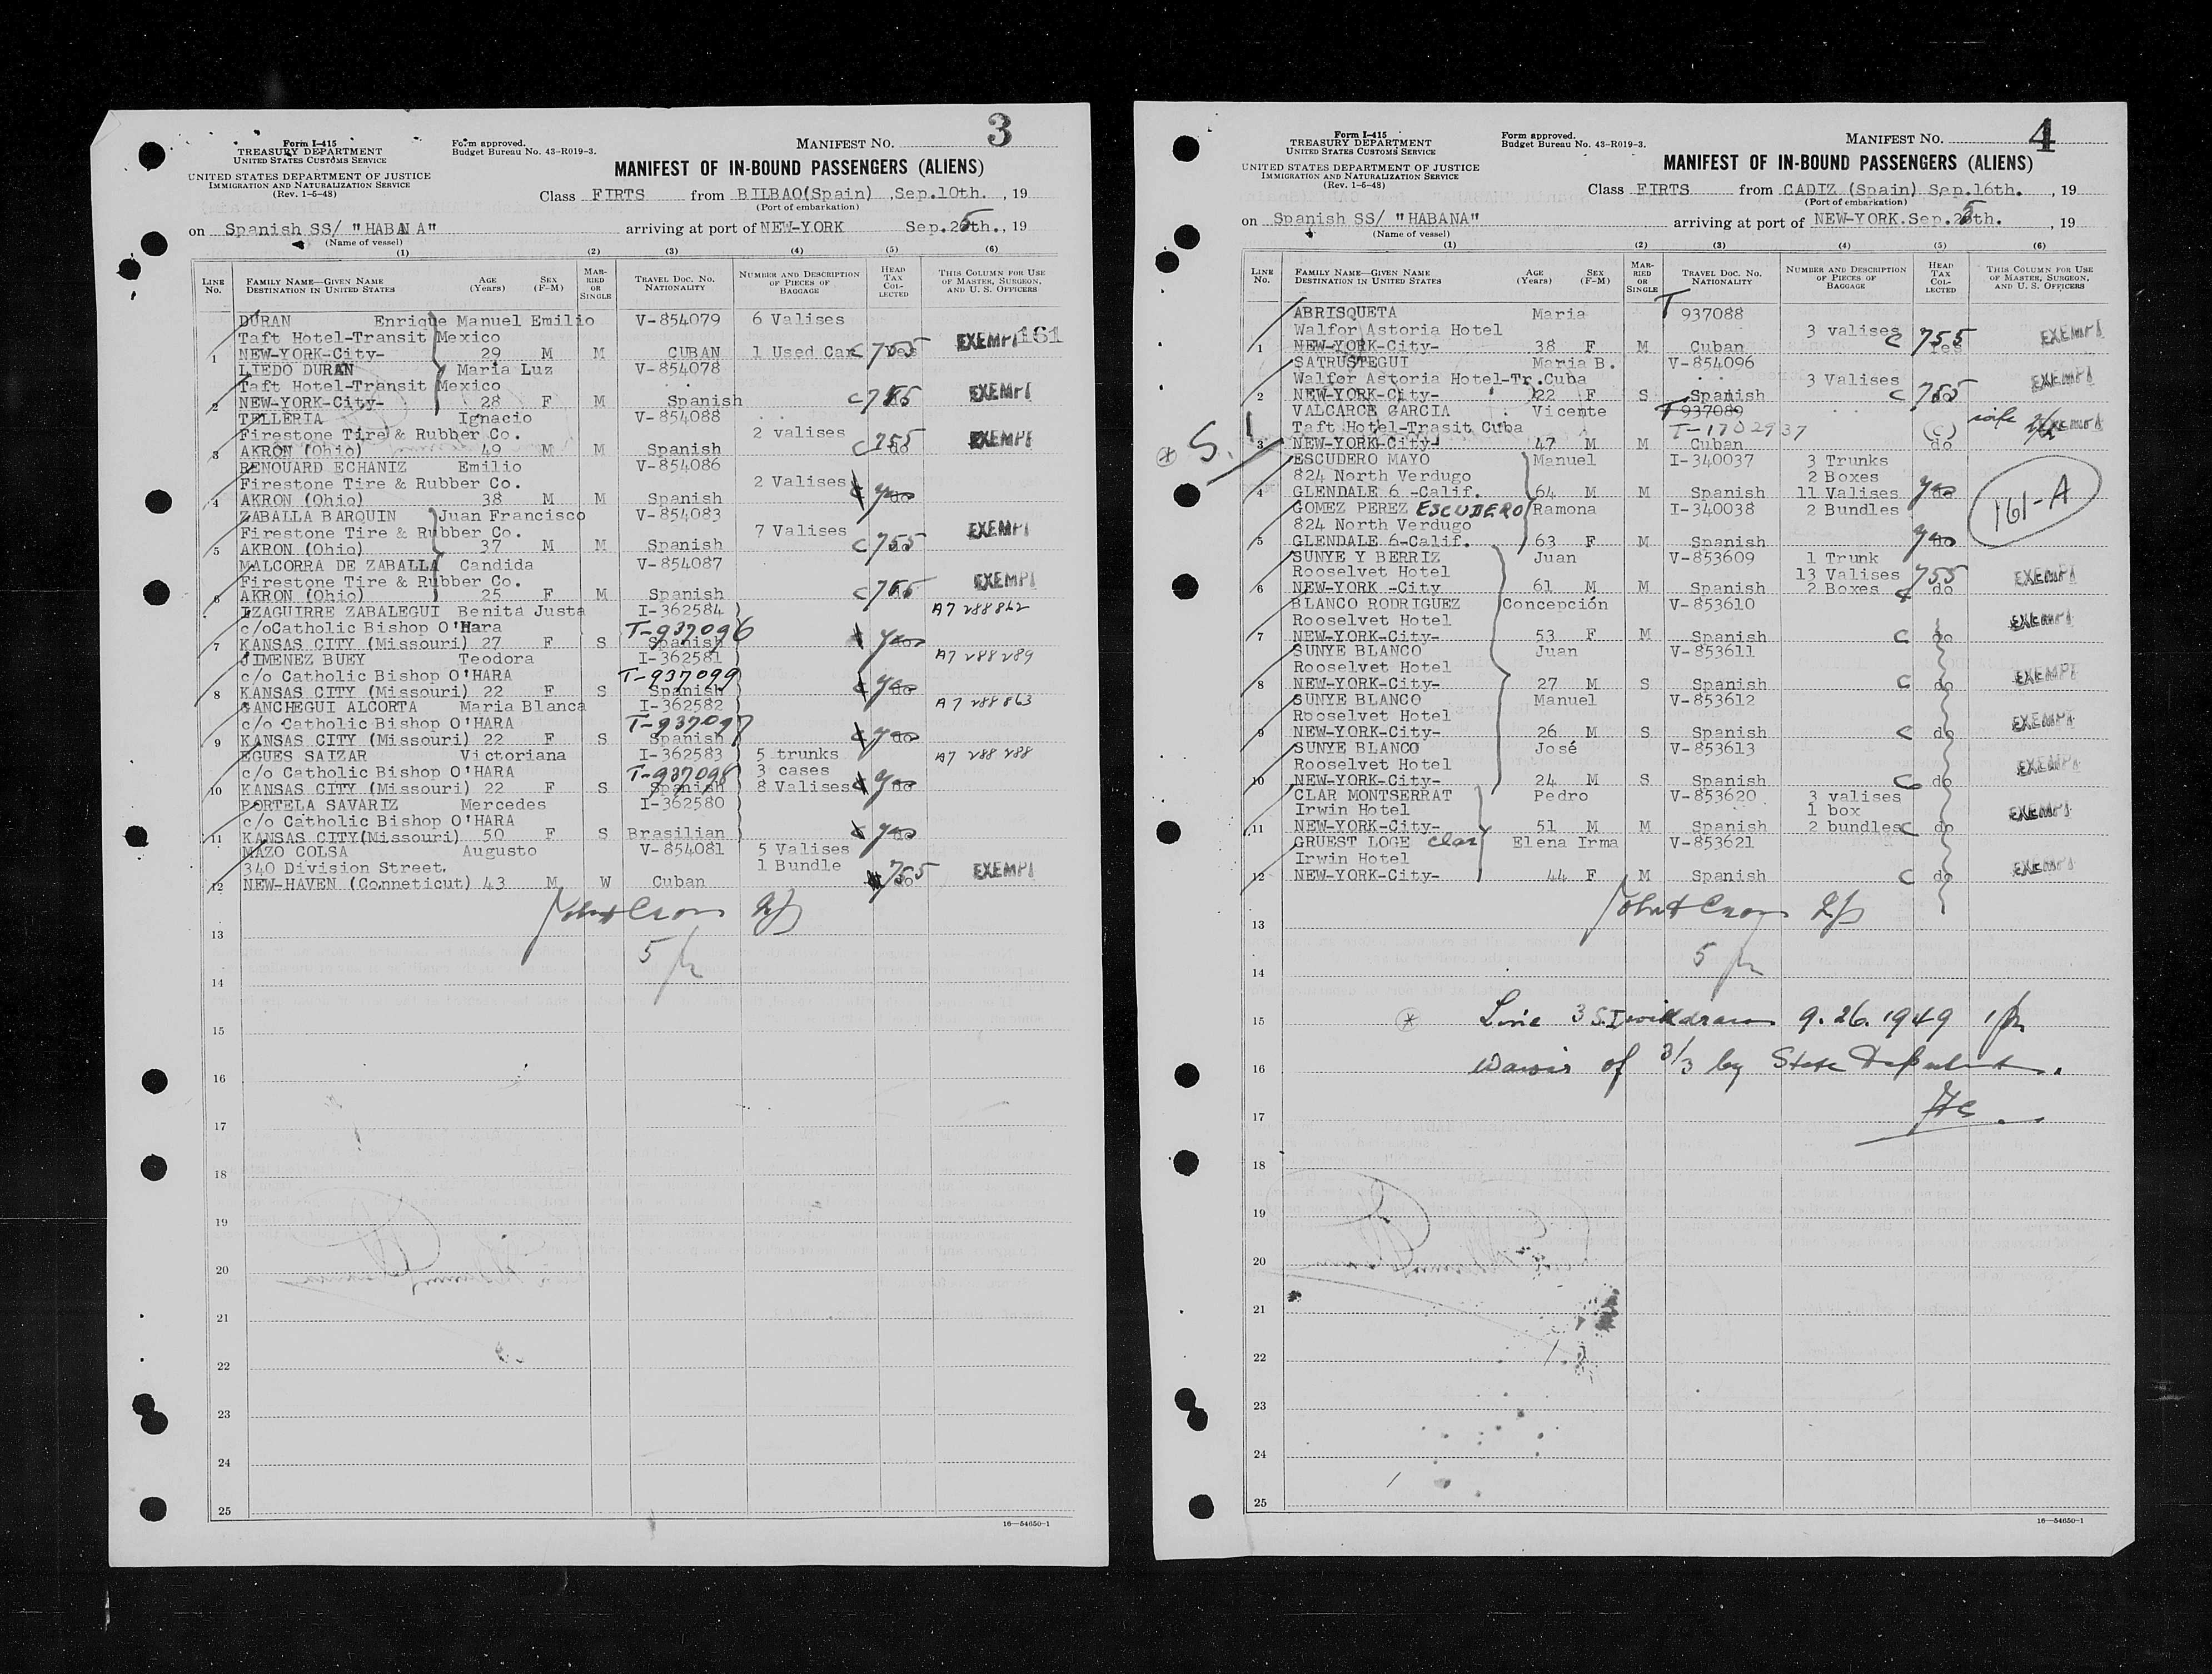 3
Form I-415
TREASURY DEPARTMENT
UNITED STATES CUSTOMS SERVICE
Form approved.
Budget Bureau No. 43-R019-3.
MANIFEST No.
UNITED STATES DEPARTMENT OF JUSTICE
IMMIGRATION AND NATURALIZATION SERVICE
(Rev. 1-6-48)
MANIFEST OF IN-BOUND PASSENGERS (ALIENS)
Class FIRTS from BILBAO(Spain) ,Sep.10th. , 19
(Port of embarkation)
on Spanish SS/ "HABANA" arriving at port of NEW-YORK Sep.25th., 19
(Name of vessel)
(1) (2) (3) (4) (5) (6)
LINE No. FAMILY NAME—GIVEN NAME DESTINATION IN UNITED STATES AGE (Years) SEX (F-M) MARRIED OR SINGLE TRAVEL DOC. No. NATIONALITY NUMBER AND DESCRIPTION OF PIECES OF BAGGAGE HEAD TAX COLLECTED THIS COLUMN FOR USE OF MASTER, SURGEON, AND U. S. OFFICERS
DURAN Enrique Manuel Emilio V-854079 6 Valises
Taft Hotel-Transit Mexico EXEMPT 161
1 NEW-YORK-City- 29 M M CUBAN 1 Used Car C 755
LIEDO DURAN Maria Luz V-854078
Taft Hotel-Transit Mexico EXEMPT
2 NEW-YORK-City- 28 F M Spanish C 755
TELLERIA Ignacio V-854088
Firestone Tire & Rubber Co. 2 valises EXEMPT
3 AKRON (Ohio) 49 M M Spanish C 755 do
RENOUARD ECHANIZ Emilio V-854086
Firestone Tire & Rubber Co. 2 Valises
4 AKRON (Ohio) 38 M M Spanish yes
ZABALLA BARQUIN Juan Francisco V-854083
Firestone Tire & Rubber Co. 7 Valises EXEMPT
5 AKRON (Ohio) 37 M M Spanish C 755
MALCORRA DE ZABALLA Candida V-854087
Firestone Tire & Rubber Co. EXEMPT
6 AKRON (Ohio) 25 F M Spanish C 755
IZAGUIRRE ZABALEGUI Benita Justa I-362584 A7 288862
c/oCatholic Bishop O'Hara T-937096
7 KANSAS CITY (Missouri) 27 F S Spanish yes
JIMENEZ BUEY Teodora I-362581 A7 288289
c/o Catholic Bishop O'HARA T-937099
8 KANSAS CITY (Missouri) 22 F S Spanish yes
SANCHEGUI ALCORTA Maria Blanca I-362582 A7 288863
c/o Catholic Bishop O'HARA T-937097
9 KANSAS CITY (Missouri) 22 F S Spanish yes
EGUES SAIZAR Victoriana I-362583 5 trunks A7 288 288
c/o Catholic Bishop O'HARA T-937098 3 cases
10 KANSAS CITY (Missouri) 22 F S Spanish 8 Valises yes
PORTELA SAVARIZ Mercedes I-362580
c/o Catholic Bishop O'HARA
11 KANSAS CITY(Missouri) 50 F S Brasilian yes
MAZO COLSA Augusto V-854081 5 Valises
340 Division Street. 1 Bundle EXEMPT
12 NEW-HAVEN (Conneticut) 43 M W Cuban 755 do
13
5
14
15
16
17
18
19
20
21
22
23
24
25
16—54650-1
4
Form I-415
TREASURY DEPARTMENT
UNITED STATES CUSTOMS SERVICE
Form approved.
Budget Bureau No. 43-R019-3.
MANIFEST No.
UNITED STATES DEPARTMENT OF JUSTICE
IMMIGRATION AND NATURALIZATION SERVICE
(Rev. 1-6-48)
MANIFEST OF IN-BOUND PASSENGERS (ALIENS)
Class FIRTS from CADIZ (Spain) Sep.16th. , 19
(Port of embarkation)
on Spanish SS/ "HABANA" arriving at port of NEW-YORK.Sep.25th. , 19
(Name of vessel)
(1) (2) (3) (4) (5) (6)
LINE No. FAMILY NAME—GIVEN NAME DESTINATION IN UNITED STATES AGE (Years) SEX (F-M) MARRIED OR SINGLE TRAVEL DOC. No. NATIONALITY NUMBER AND DESCRIPTION OF PIECES OF BAGGAGE HEAD TAX COLLECTED THIS COLUMN FOR USE OF MASTER, SURGEON, AND U. S. OFFICERS
ABRISQUETA Maria T 937088
Walfor Astoria Hotel 3 valises EXEMPT
1 NEW-YORK-City- 38 F M Cuban C 755 Yes
SATRUSTEGUI Maria B. V-854096
Walfor Astoria Hotel-Tr.Cuba 3 Valises EXEMPT
2 NEW-YORK-City- 22 F S Spanish C 755
VALCARCE GARCIA Vicente T 937089
Taft Hotel-Trasit Cuba T-1702937 (C) EXEMPT
S.I 3 NEW-YORK-City- 47 M M Cuban do
ESCUDERO MAYO Manuel I-340037 3 Trunks
824 North Verdugo 2 Boxes
4 GLENDALE 6 -Calif. 64 M M Spanish 11 Valises yes 161-A
GOMEZ PEREZ ESCUDERO Ramona I-340038 2 Bundles
824 North Verdugo
5 GLENDALE 6-Calif. 63 F M Spanish yes
SUNYE Y BERRIZ Juan V-853609 1 Trunk
Rooselvet Hotel 13 Valises 755 EXEMPT
6 NEW-YORK -City 61 M M Spanish 2 Boxes C do
BLANCO RODRIGUEZ Concepción V-853610
Rooselvet Hotel EXEMPT
7 NEW-YORK-City- 53 F M Spanish C do
SUNYE BLANCO Juan V-853611
Rooselvet Hotel EXEMPT
8 NEW-YORK-City- 27 M S Spanish C do
SUNYE BLANCO Manuel V-853612
Rooselvet Hotel EXEMPT
9 NEW-YORK-City- 26 M S Spanish C do
SUNYE BLANCO José V-853613
Rooselvet Hotel EXEMPT
10 NEW-YORK-City- 24 M S Spanish C do
CLAR MONTSERRAT Pedro V-853620 3 valises
Irwin Hotel 1 box EXEMPT
11 NEW-YORK-City- 51 M M Spanish 2 bundles C do
GRUEST LOGE Clar Elena Irma V-853621
Irwin Hotel EXEMPT
12 NEW-YORK-City- 44 F M Spanish C do
13
5
14
15 Line 3 S.I withdrawn 9.26.1949
16 Waiver of 3/3 by State Department.
17
18
19
20
21
22
23
24
25
16—54650-1